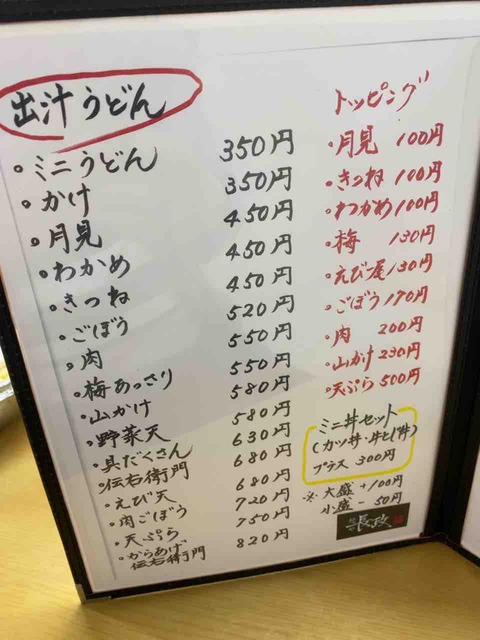 出汁うどん
・ミニうどん 350円
・かけ 350円
・月見 450円
・わかめ 450円
・きつね 450円
・ごぼう 520円
・肉 550円
・梅あっさり 550円
・山かけ 580円
・野菜天 580円
・具だくさん 630円
・伝右衛門 680円
・えび天 680円
・肉ごぼう 720円
・天ぷら 750円
・からあげ
伝右衛門 820円
トッピング
・月見 100円
・きつね 100円
・わかめ 100円
・梅 130円
・えび1尾 130円
・ごぼう 170円
・肉 200円
・山かけ 230円
・天ぷら 500円
ミニ丼セット
(カツ丼・牛とじ丼)
プラス 300円
※大盛 +100円
小盛 - 50円
長政